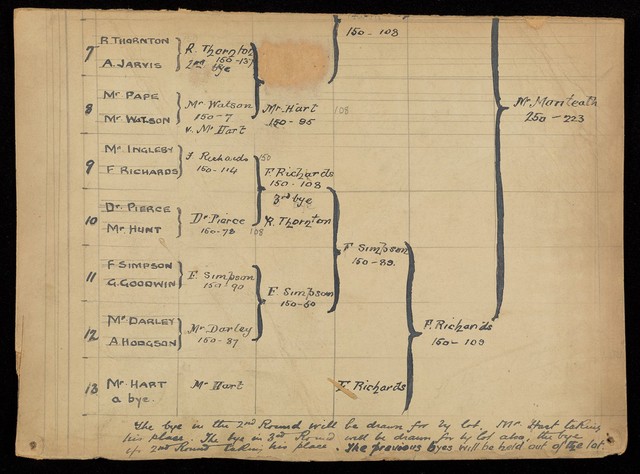 150 - 103
7 R. THORNTON
A. JARVIS
R. Thornton
150 - 137
2nd bye
8 Mr PAPE
Mr WATSON
Mr Watson
150 - 7
v. Mr Hart
Mr. Hart
150 - 95
108
Mr. Monteath
250 - 223
9 Mr INGLEBY
F RICHARDS
F. Richards
150 - 114
150
F. Richards
150 - 108
3rd bye
10 Dr. PIERCE
Mr HUNT
Dr. Pierce
150 - 78
108
R. Thornton
11 F SIMPSON
G. GOODWIN
F. Simpson
150 - 90
F. Simpson
150 - 60
F. Simpson
150 - 89.
12 Mr DARLEY
A HODGSON
Mr. Darley
150 - 87
F. Richards
150 - 109
13 Mr. HART
a bye.
Mr Hart
F. Richards
The bye in the 2nd Round will be drawn for by lot. Mr. Hart taking
his place. The bye in 3rd Round will be drawn for by lot also, the bye
of 2nd Round taking his place. The previous byes will be held out of the lot.